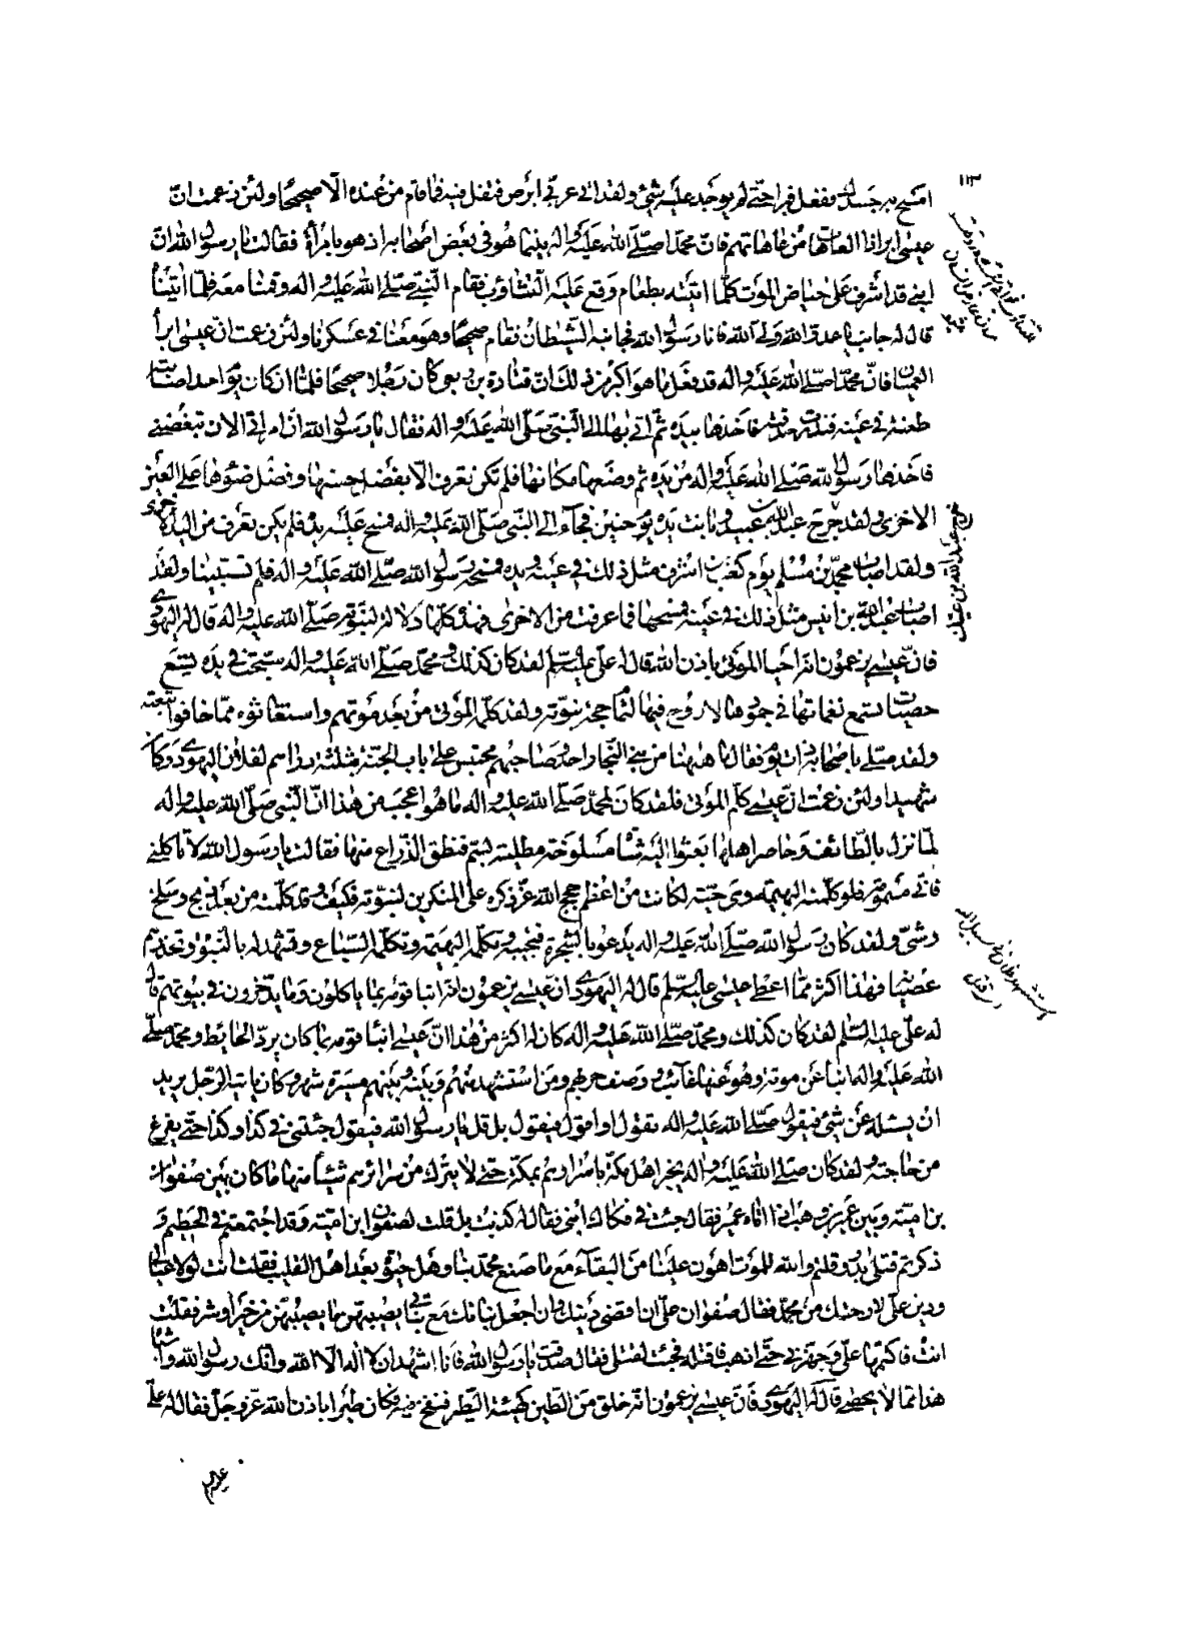 ١١٣
امسح به جسدك ففعل فبرا حتى لم يوجد عليه شئ ولقد اتى عربى ابرص فتفل فيه فما قام من عنده الا صحيحا ولئن زعمت ان
عيسى ابرا ذا العاهات من عاهاتهم فان محمدا صلى الله عليه واله بينما هو فى بعض اصحابه اذ هو بامراة فقالت يا رسول الله ان
ابنى قد اشرف على حياض الموت كلما اتيته بطعام وقع عليه التثاؤب فقام النبى صلى الله عليه واله وقمنا معه فلما اتيناه
قال له جانب يا عدو الله ولى الله فانا رسول الله فجانبه الشيطان فقام صحيحا وهو معنا فى عسكرنا ولئن زعمت ان عيسى ابرا
العميان فان محمدا صلى الله عليه واله قد فعل ما هو اكبر من ذلك ان قتادة بن ربعى كان رجلا صحيحا فلما ان كان يوم احد اصابته
طعنة فى عينه فبدرت حدقته فاخذها بيده ثم اتى بها الى النبى صلى الله عليه واله فقال يا رسول الله ان امراتى الان تبغضنى
فاخذها رسول الله صلى الله عليه واله من يده ثم وضعها مكانها فلم تكن تعرف الا بفضل حسنها وفضل ضوئها على العين
الاخرى ولقد جرح عبد الله بن عبيد وبانت يده يوم حنين فجاء الى النبى صلى الله عليه واله فمسح عليه يده فلم يكن تعرف من اليد الاخرى
ولقد اصاب محمد بن مسلم يوم كعب بن اشرف مثل ذلك فى عينه ويده فمسحه رسول الله صلى الله عليه واله فلم تستبينا ولقد
اصاب عبد الله بن انيس مثل ذلك فى عينه فمسحها فما عرفت من الاخرى فهذه كلها دلالة لنبوته صلى الله عليه واله قال له اليهودى
فان عيسى يزعمون انه احيا الموتى باذن الله قال له على عليه السلم لقد كان كذلك ومحمد صلى الله عليه واله سبحت فى يده تسع
حصيات تسمع نغماتها فى جمودها لا روح فيها لتمام حجة نبوته ولقد كلم الموتى من بعد موتهم واستغاثوه مما خافوا تبعته
ولقد صلى باصحابه ذات يوم فقال ما ههنا من بنى النجار احد وصاحبهم محتبس على باب الجنة بثلثة دراهم لفلان اليهودى وكان
شهيدا ولئن زعمت ان عيسى كلم الموتى فلقد كان لمحمد صلى الله عليه واله ما هو اعجب من هذا ان النبى صلى الله عليه واله
لما نزل بالطائف وحاصر اهلها بعثوا اليه بشاة مسلوخة مطلية بسم فنطق الذراع منها فقالت يا رسول الله لا تاكلنى
فانى مسمومة فلو كلمته البهيمة وهى حية لكانت من اعظم حجج الله عز ذكره على المنكرين لنبوته فكيف وقد كلمته من بعد ذبح وسلخ
وشى ولقد كان رسول الله صلى الله عليه واله يدعو بالشجرة فتجيبه وتكلمه البهيمة وتكلمه السباع وتشهد له بالنبوة وتحذرهم
عصيانه فهذا اكثر مما اعطى عيسى عليه السلم قال له اليهودى ان عيسى يزعمون انه انبا قومه بما ياكلون وما يدخرون فى بيوتهم قال
له على عليه السلم لقد كان كذلك ومحمد صلى الله عليه واله كان له اكثر من هذا ان عيسى انبا قومه بما كان من وراء الحائط ومحمد صلى
الله عليه واله انبا عن موتة وهو عنها غائب ووصف حربهم ومن استشهد منهم وبينه وبينهم مسيرة شهور وكان ياتيه الرجل يريد
ان يسئله عن شئ فيقول صلى الله عليه واله تقول او اقول فيقول بل قل يا رسول الله فيقول جئتنى فى كذا وكذا حتى يفرغ
من حاجته ولقد كان صلى الله عليه واله يخبر اهل مكة باسرارهم بمكة حتى لا يترك من سرائرهم شيئا منها ما كان بين صفوان
بن امية وبين عمير بن وهب اذا اتاه عمير فقال جئت فى فكاك ابنى فقال له كذبت بل قلت لصفوان ابن امية وقد اجتمعتم فى الحطيم و
ذكرتم قتلى بدر وقلتم والله للموت اهون علينا من البقاء مع ما صنع محمد بنا وهل حيوة بعد اهل القليب فقلت انت لولا عيالى
ودين على لارحتك من محمد فقال صفوان على ان اقضى دينك وان اجعل بناتك مع بناتى يصيبهن ما يصيبهن من خير او شر فقلت
انت فاكتمها على وجهزنى حتى اذهب فاقتله فجئت لقتلى فقال صدقت يا رسول الله فانا اشهد ان لا اله الا الله وانك رسول الله واشباه
هذا مما لا يحصى قال له اليهودى فان عيسى يزعمون انه خلق من الطين كهيئة الطير فنفخ فيه فكان طيرا باذن الله عز وجل فقال له على
عليه السلم